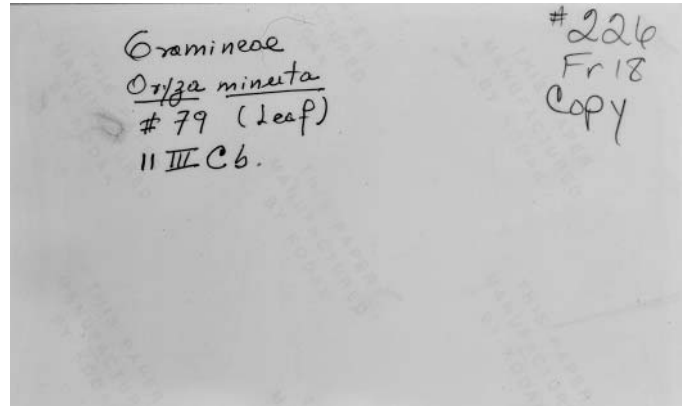 Gramineae
Oryza minuta
# 79 (Leaf)
11 III Cb.
#226
Fr 18
Copy
THIS PAPER
MANUFACTURED
BY KODAK